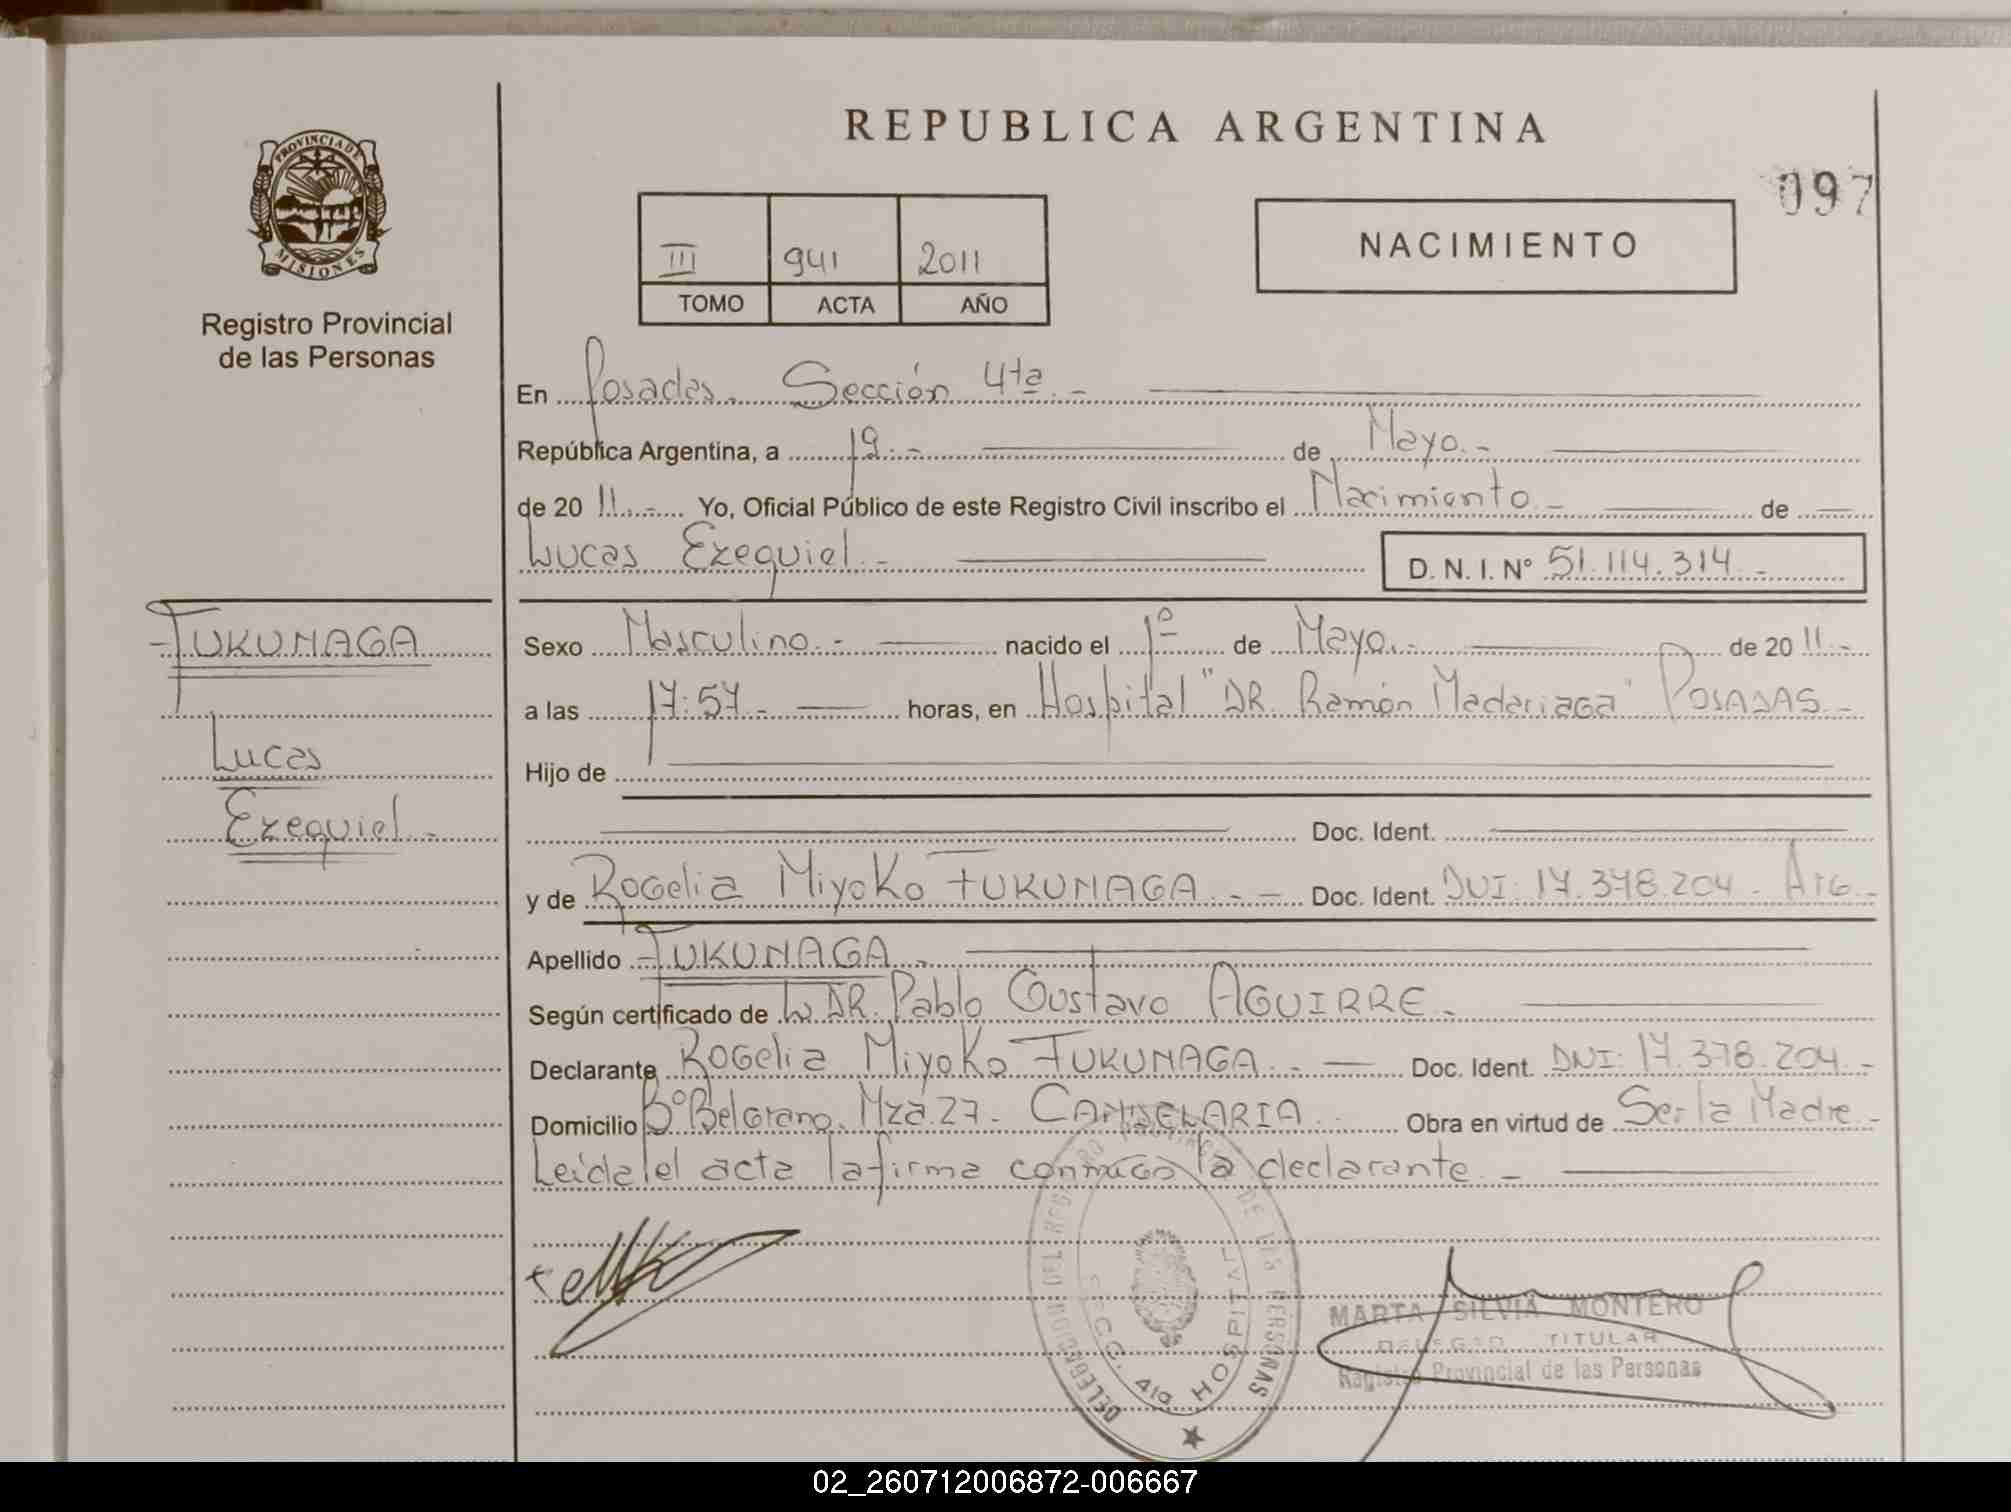 REPUBLICA ARGENTINA
097
PROVINCIA DE MISIONES
Registro Provincial
de las Personas
III 941 2011
TOMO ACTA AÑO
NACIMIENTO
En Posadas. Sección 4ta.-
República Argentina, a 19.- de Mayo.-
de 20 11.- Yo, Oficial Público de este Registro Civil inscribo el Nacimiento.- de
Lucas Ezequiel.- D. N. I. N° 51.114.314.-
FUKUNAGA
Lucas
Ezequiel.-
Sexo Masculino.- nacido el 1º de Mayo.- de 20 11.-
a las 17:57.- horas, en Hospital "DR. Ramón Madariaga" POSADAS.-
Hijo de
Doc. Ident.
y de Rogelia Miyoko FUKUNAGA.- Doc. Ident. DNI: 17.378.204.- Arg.-
Apellido FUKUNAGA.-
Según certificado de DR. Pablo Gustavo AGUIRRE.-
Declarante Rogelia Miyoko FUKUNAGA.- Doc. Ident. DNI: 17.378.204.-
Domicilio Bº Belgrano. Mza. 27- CANDELARIA.- Obra en virtud de Ser la Madre.-
Leida el acta la firma conmigo la declarante.-
DELEGACION DEL REGISTRO PROVINCIAL DE LAS PERSONAS
SECC. 4ta HOSPITAL
MARTA SILVIA MONTERO
TITULAR
Registro Provincial de las Personas
02_260712006872-006667